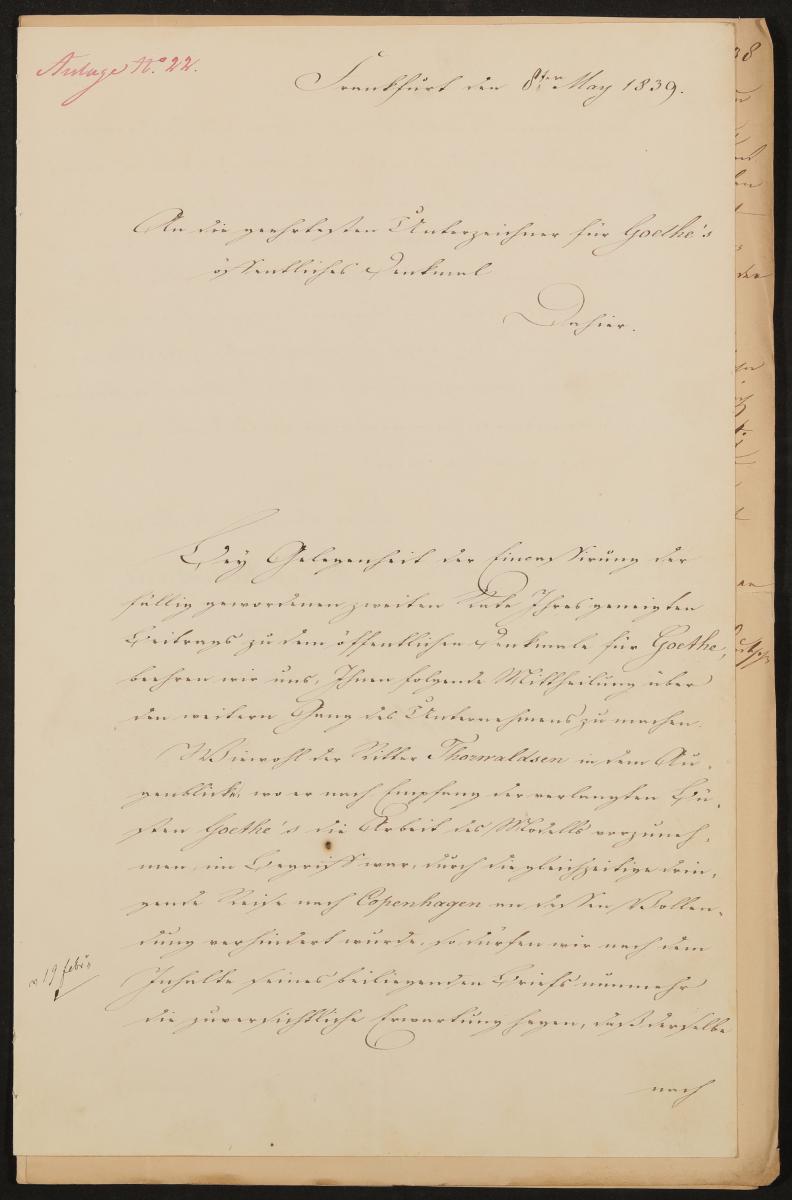 Anlage No. 22.
Frankfurt den 8ten May 1839.
An die geehrtesten Unterzeichner für Goethe's
öffentliches Denkmal
Dahier.
Bey Gelegenheit der Eincassirung der
fällig gewordenen zweiten Rate Ihres geneigten
Beitrags zu dem öffentlichen Denkmale für Goethe,
beehren wir uns, Ihnen folgende Mittheilung über
den weitern Gang des Unternehmens zu machen.
Wiewohl der Ritter Thorwaldsen in dem Au-
genblicke, wo er nach Empfang der verlangten Bü-
sten Goethe's die Arbeit des Modells vorzuneh-
men im Begriff war, durch die gleichzeitige drin-
gende Reise nach Copenhagen an dessen Vollen-
dung verhindert wurde, so dürfen wir nach dem
19 febr.
Inhalte seines beiliegenden Briefs nunmehr
die zuversichtliche Erwartung hegen, daß derselbe
nach